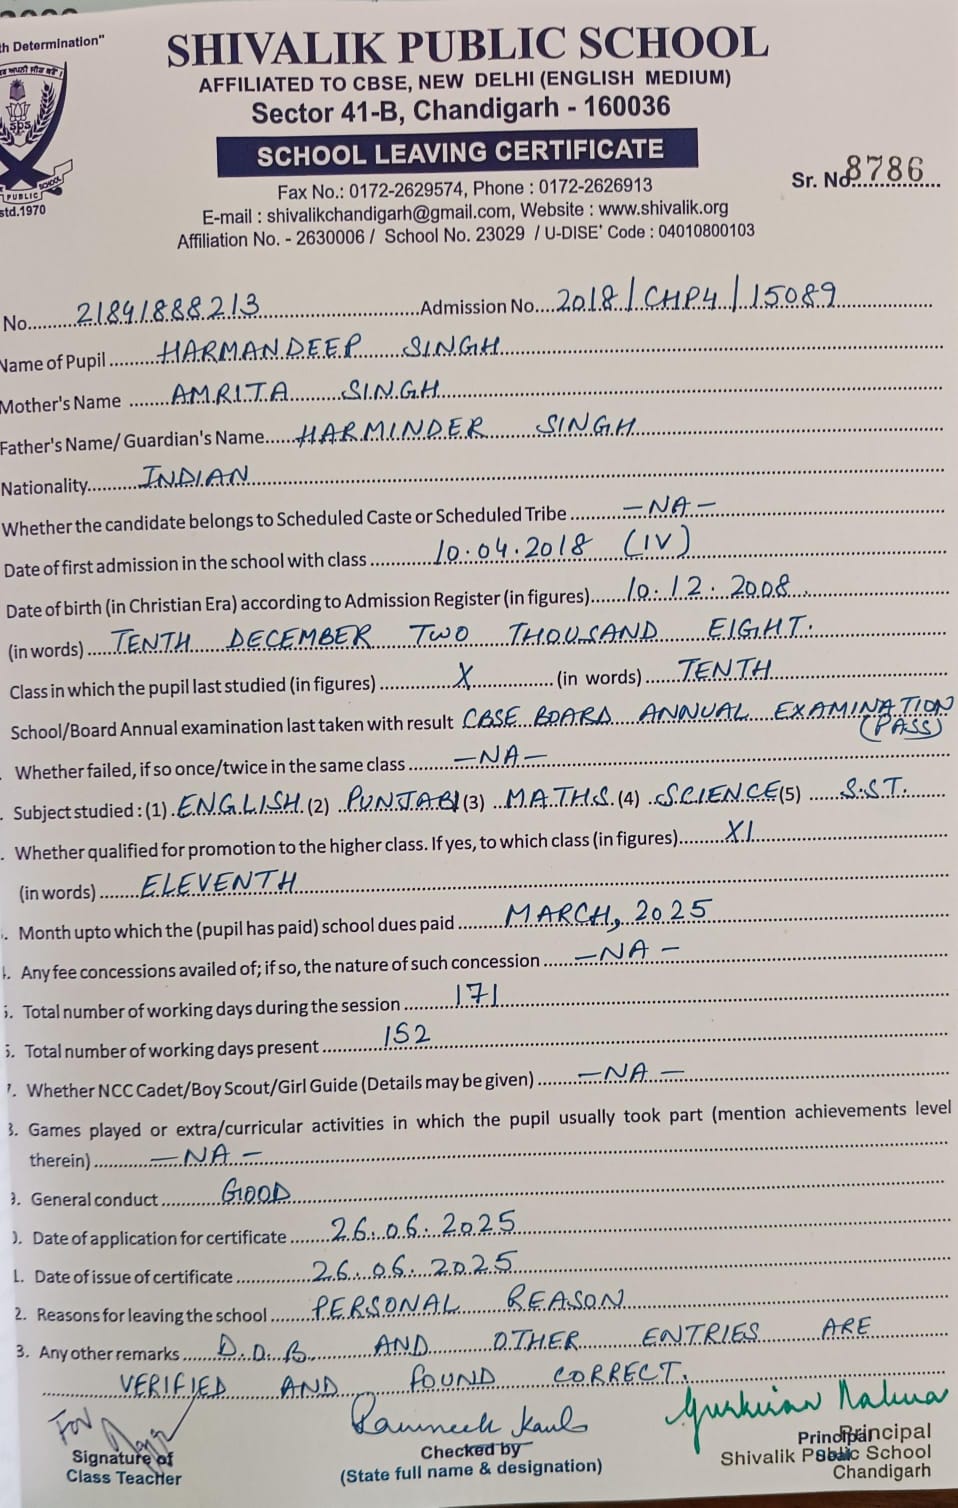 th Determination"
SHIVALIK PUBLIC SCHOOL
AFFILIATED TO CBSE, NEW DELHI (ENGLISH MEDIUM)
Sector 41-B, Chandigarh - 160036
SCHOOL LEAVING CERTIFICATE
Sr. No. 8786
sps
PUBLIC SCHOOL
std.1970
Fax No.: 0172-2629574, Phone : 0172-2626913
E-mail : shivalikchandigarh@gmail.com, Website : www.shivalik.org
Affiliation No. - 2630006 / School No. 23029 / U-DISE' Code : 04010800103
No. 21841888213 Admission No. 2018/CHP4/15089
Name of Pupil HARMANDEEP SINGH
Mother's Name AMRITA SINGH
Father's Name/ Guardian's Name HARMINDER SINGH
Nationality INDIAN
Whether the candidate belongs to Scheduled Caste or Scheduled Tribe -NA-
Date of first admission in the school with class 10.04.2018 (IV)
Date of birth (in Christian Era) according to Admission Register (in figures) 10.12.2008
(in words) TENTH DECEMBER TWO THOUSAND EIGHT.
Class in which the pupil last studied (in figures) X (in words) TENTH
School/Board Annual examination last taken with result CBSE BOARD ANNUAL EXAMINATION
(PASS)
. Whether failed, if so once/twice in the same class -NA-
. Subject studied : (1) ENGLISH (2) PUNJABI (3) MATHS (4) SCIENCE (5) S.ST.
. Whether qualified for promotion to the higher class. If yes, to which class (in figures) XI
(in words) ELEVENTH
. Month upto which the (pupil has paid) school dues paid MARCH, 2025
. Any fee concessions availed of; if so, the nature of such concession -NA-
. Total number of working days during the session 171
. Total number of working days present 152
. Whether NCC Cadet/Boy Scout/Girl Guide (Details may be given) -NA-
. Games played or extra/curricular activities in which the pupil usually took part (mention achievements level
therein) -NA-
. General conduct GOOD
. Date of application for certificate 26.06.2025
. Date of issue of certificate 26.06.2025
2. Reasons for leaving the school PERSONAL REASON
3. Any other remarks D.O.B. AND OTHER ENTRIES ARE
VERIFIED AND FOUND CORRECT.
For
Signature of
Class Teacher
Checked by
(State full name & designation)
Principal
Principal
Shivalik Public School
Chandigarh